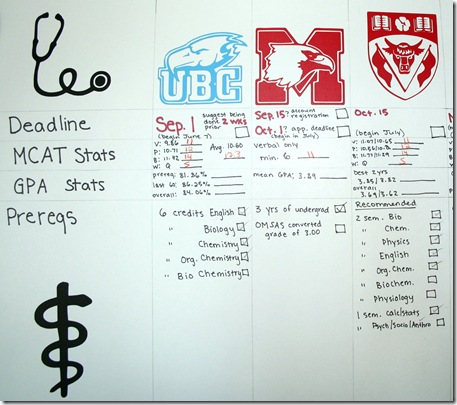 UBC
Deadline
MCAT Stats
GPA Stats
Prereqs
Sep. 1
suggest being
done 2 WKS
prior
(begin June
V: 9.86 11
P: 10.71 12
B: 11.42 14
W: Q S
Avg. 10.60
12.3
prereq: 81.26%
last 60: 86.25%
overall: 84.06%
6 credits English
" Biology
" Chemistry
" Org. Chemistry
" Bio Chemistry
Sep. 15? account
registration
Oct. 1? app. deadline
(begin in July)
verbal only
min. 6 11
mean GPA: 3.84
3 yrs of undergrad
OMSAS converted
grade of 3.00
Oct. 15
(begin July)
V: 11.07/10.65 11
W: Q S
best 2 yrs
3.85/3.82
overall:
3.69/3.62
Recommended
2 sem. Bio
" Chem.
" Physics
" English
" Org. Chem.
" Biochem.
" Physiology
1 sem. calc/stats
" Psych/Socio/Anthro